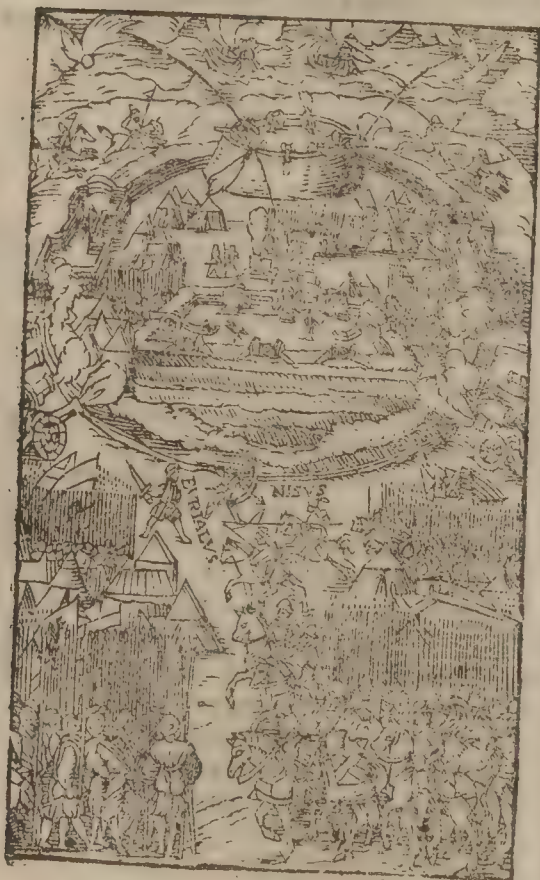 EVRIALVS
NISVS